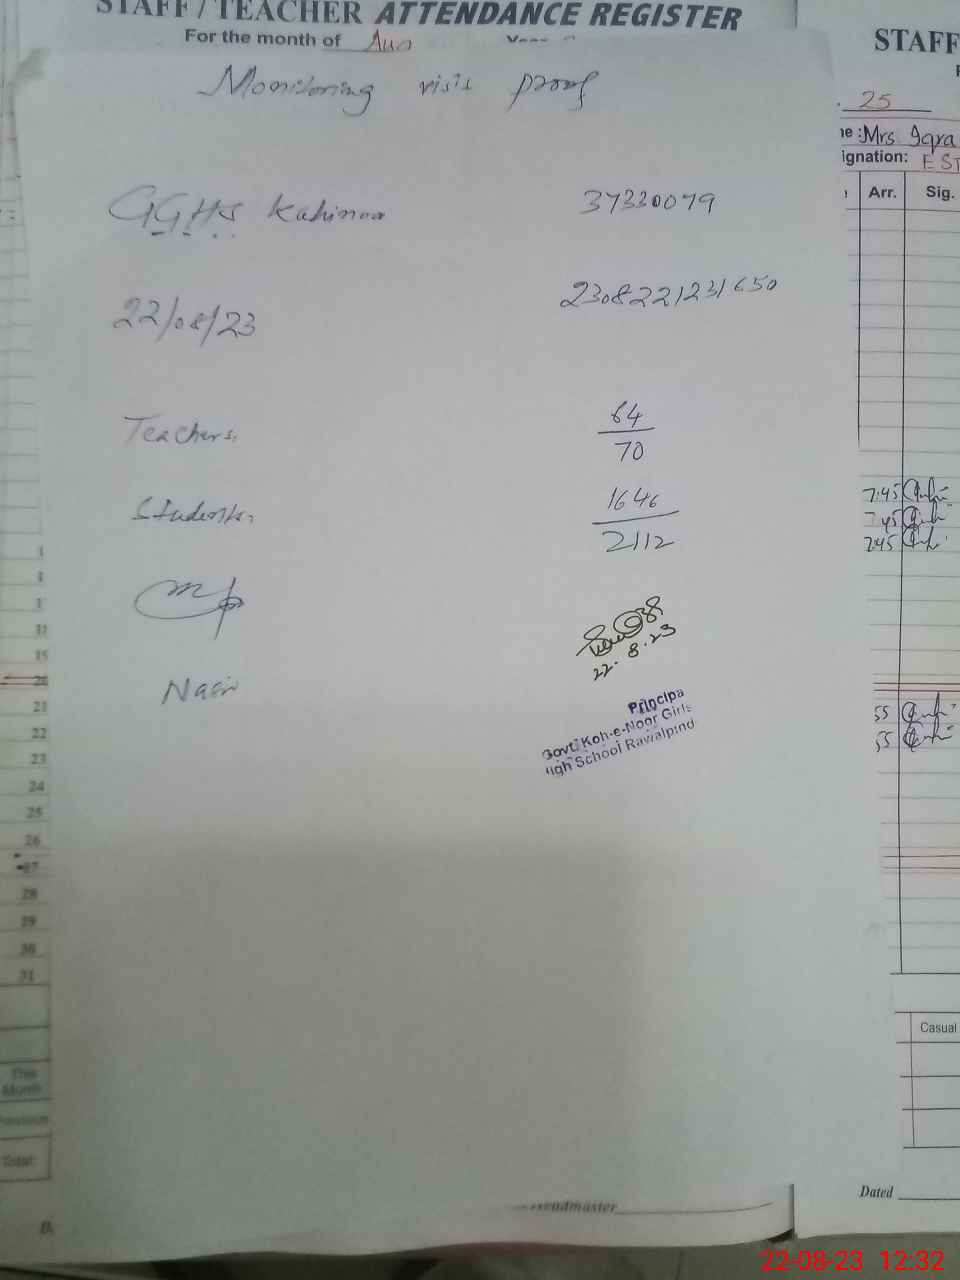 STAFF / TEACHER ATTENDANCE REGISTER
For the month of Aug
Monitoring visit proof
GGHS Kahinoor 37330079
22/08/23 2308221231650
Teachers. 64/70
Students. 1646/2112
22.8.23
Nasir
Principa
Govt. Koh-e-Noor Girls
High School Rawalpind
STAFF
25
ne : Mrs Iqra
ignation: EST
Arr. Sig.
7:45
7:45
7:45
55
55
Casual
Dated
20
21
22
23
24
25
26
27
28
29
30
31
This
Month
Previous
Total:
eadmaster
22-08-23 12:32